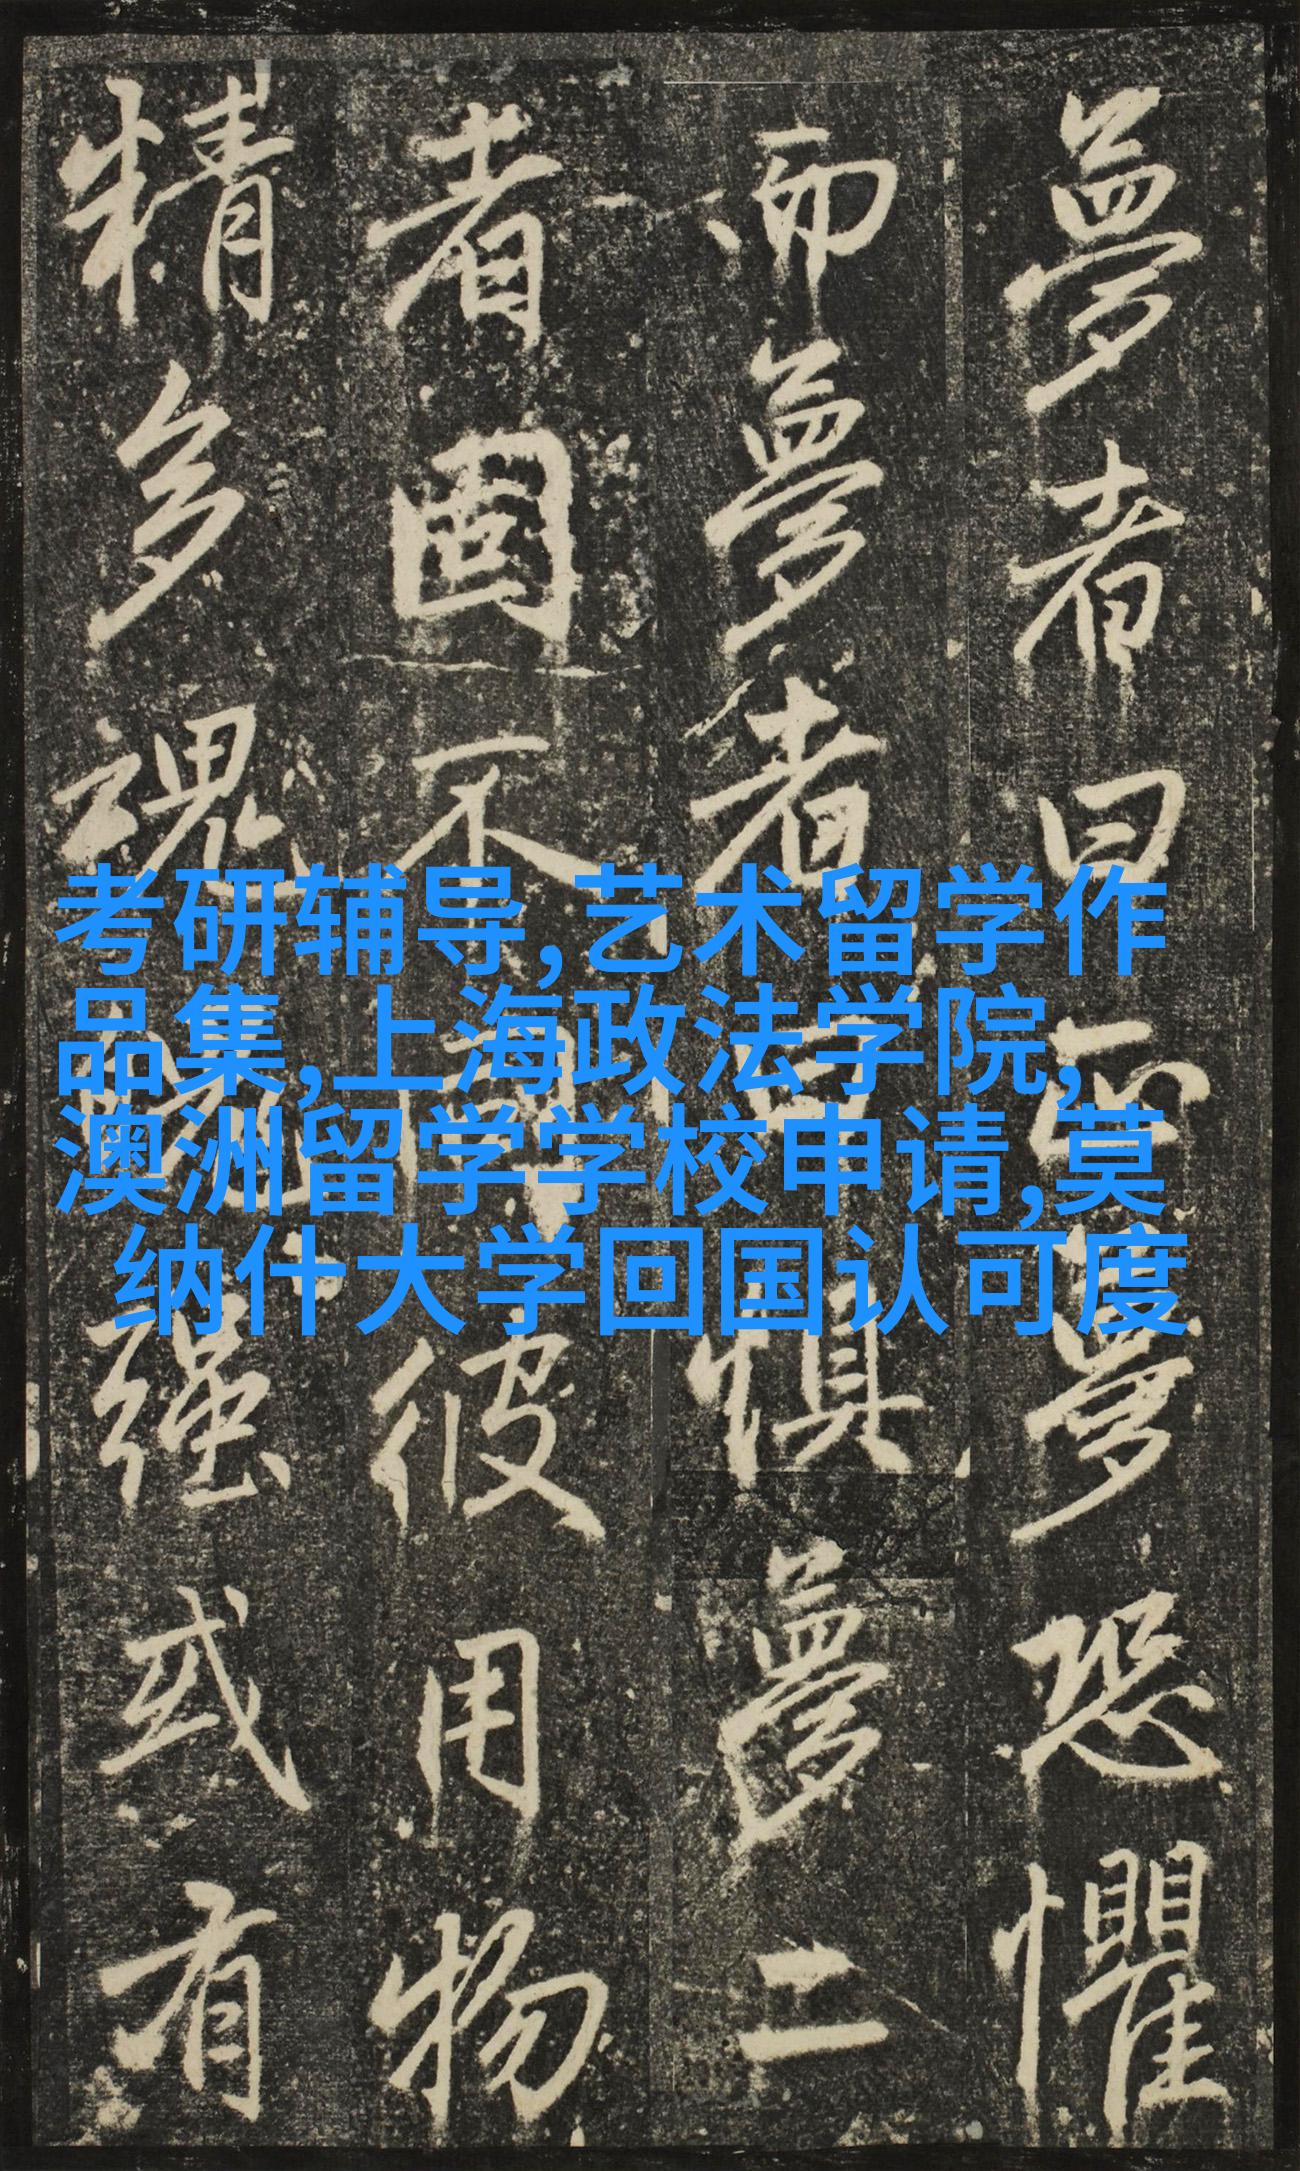 夢者曰夢恐懼
而夢者懼夢二
者固不彼用物
精多魂強或有
考研辅导,艺术留学作
品集,上海政法学院,
澳洲留学学校申请,莫
纳什大学回国认可度